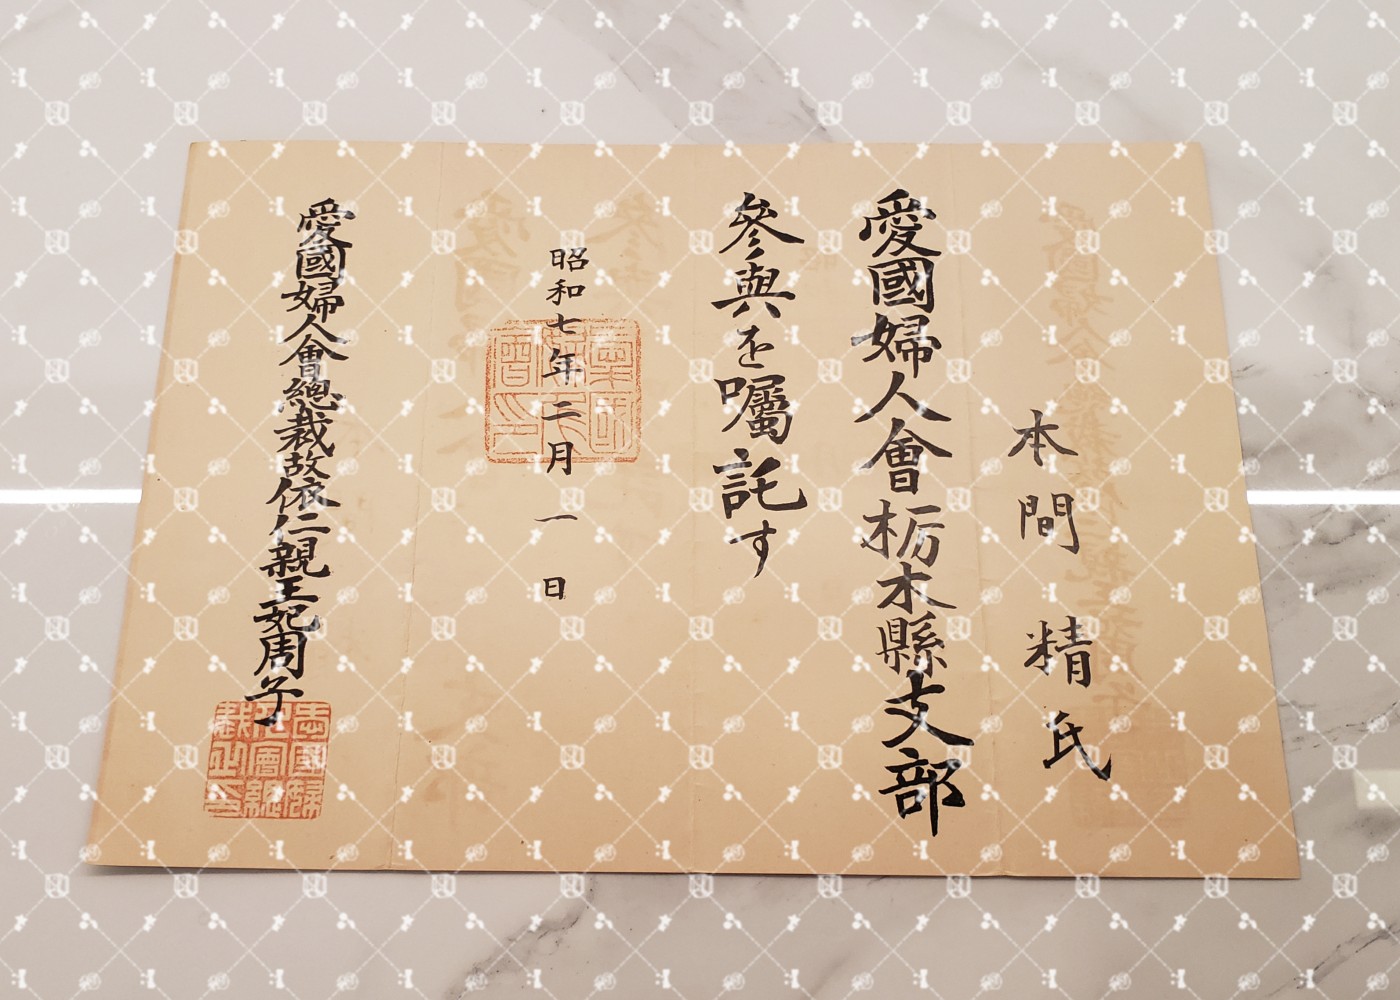 本間精氏
愛國婦人會栃木縣支部
參與を囑託す
昭和七年二月一日
愛國婦人會總裁故依仁親王妃周子
愛國婦人會總裁之印